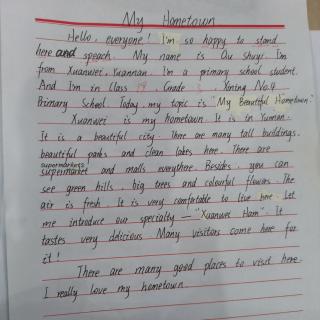 My Hometown
Hello, everyone! I'm so happy to stand
here and speach. My name is Qu Shuyi. I'm
from Xuanwei, Yuannan. I'm a primary school student.
And I'm in Class 19, Grade 3, Xining No.4
Primary School. Today, my topic is "My Beautiful Hometown".
Xuanwei is my hometown. It is in Yunnan.
It is a beautiful city. There are many tall buildings,
beautiful parks and clean lakes here. There are
supermarkets
supermarket and malls everywhere. Besides, you can
see green hills, big trees and colourful flowers. The
air is fresh. It is very comfortable to live here. Let
me introduce our specialty — "Xuanwei Ham". It
tastes very delicious. Many visitors come here for
it!
There are many good places to visit here.
I really love my hometown.